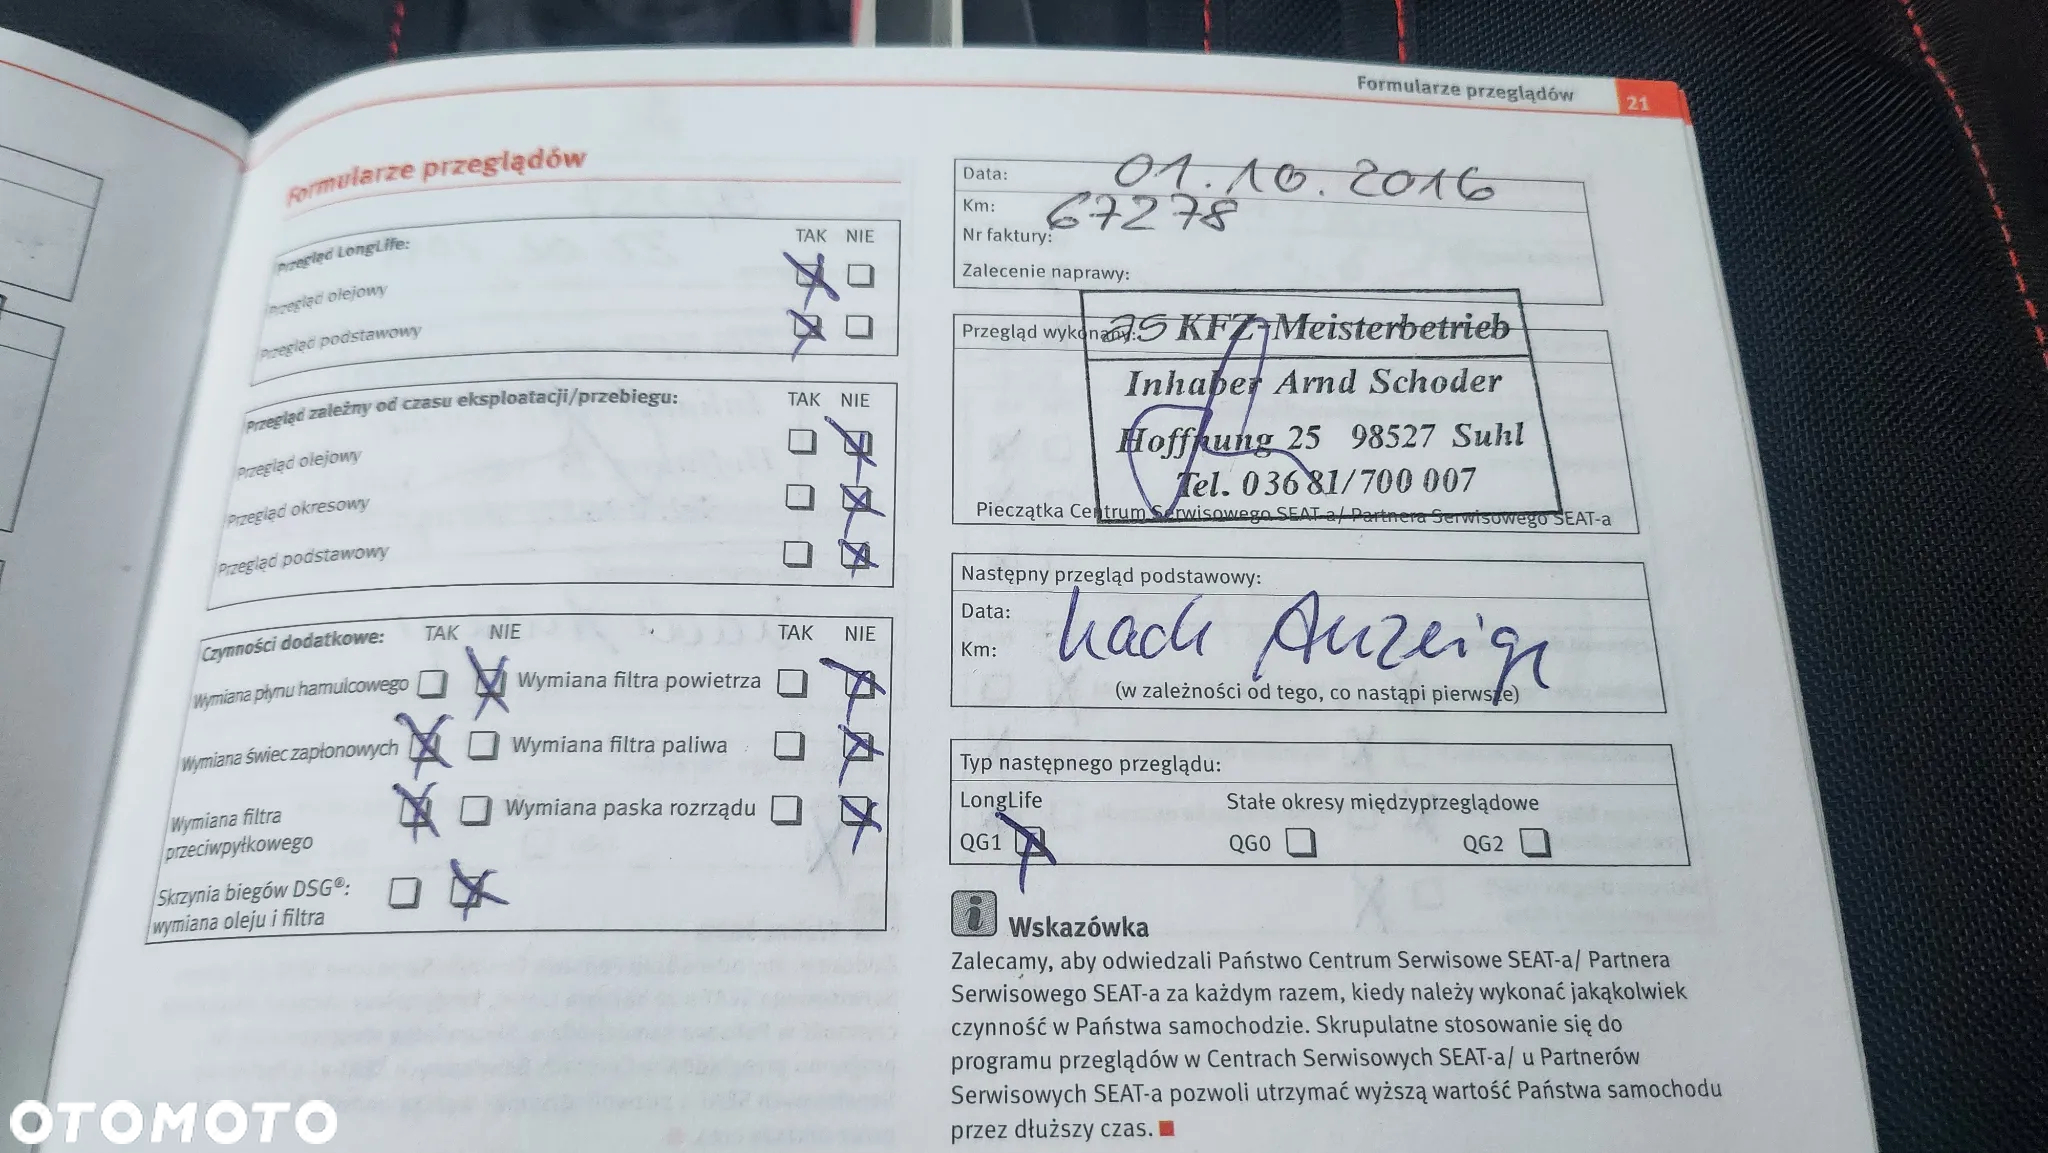 Formularze przeglądów 21
Formularze przeglądów
Przegląd LongLife: TAK NIE
Przegląd olejowy
Przegląd podstawowy
Przegląd zależny od czasu eksploatacji/przebiegu: TAK NIE
Przegląd olejowy
Przegląd okresowy
Przegląd podstawowy
Czynności dodatkowe: TAK NIE TAK NIE
Wymiana płynu hamulcowego Wymiana filtra powietrza
Wymiana świec zapłonowych Wymiana filtra paliwa
Wymiana filtra Wymiana paska rozrządu
przeciwpyłkowego
Skrzynia biegów DSG®:
wymiana oleju i filtra
Data: 01.10.2016
Km: 67278
Nr faktury:
Zalecenie naprawy:
Przegląd wykonany:
as KFZ-Meisterbetrieb
Inhaber Arnd Schoder
Hoffnung 25 98527 Suhl
Tel. 03681/700 007
Pieczątka Centrum Serwisowego SEAT-a/ Partnera Serwisowego SEAT-a
Następny przegląd podstawowy:
Data: nach Anzeige
Km:
(w zależności od tego, co nastąpi pierwsze)
Typ następnego przeglądu:
LongLife Stałe okresy międzyprzeglądowe
QG1 QG0 QG2
Wskazówka
Zalecamy, aby odwiedzali Państwo Centrum Serwisowe SEAT-a/ Partnera
Serwisowego SEAT-a za każdym razem, kiedy należy wykonać jakąkolwiek
czynność w Państwa samochodzie. Skrupulatne stosowanie się do
programu przeglądów w Centrach Serwisowych SEAT-a/ u Partnerów
Serwisowych SEAT-a pozwoli utrzymać wyższą wartość Państwa samochodu
przez dłuższy czas.
OTOMOTO